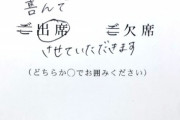 喜んで
御出席 御欠席
させていただきます
(どちらか○でお囲みください)